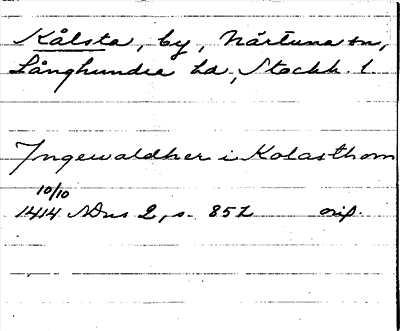 Kålsta, by, Närtuna sn,
Långhundra hd, Stockh. l.
Ingewaldher i Kolasthom
10/10
1414 SDns 2, s. 852 orig.